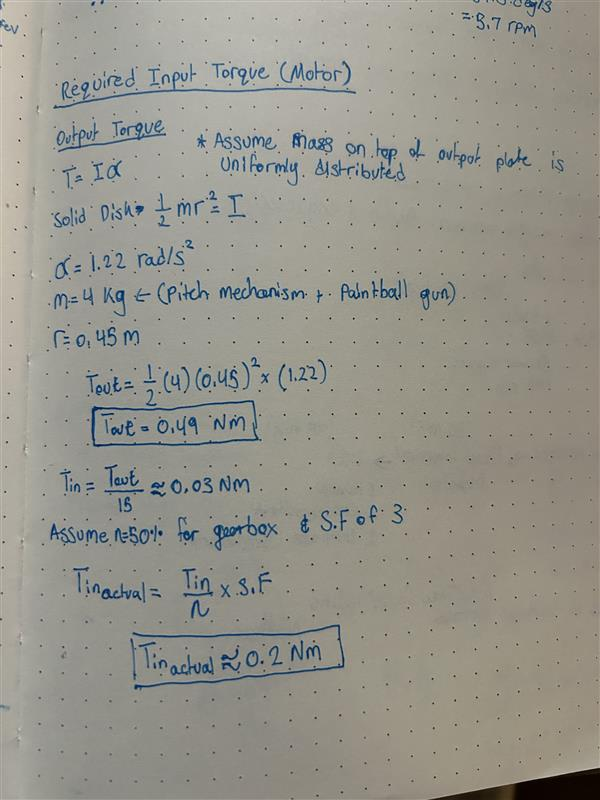 = 5.7 rpm
Required Input Torque (Motor)
Output Torque
* Assume mass on top of output plate is
Uniformly distributed
T = Iα
Solid Disk → 1/2 mr² = I
α = 1.22 rad/s²
m = 4 Kg ← (Pitch mechanism + Paintball gun)
r = 0,45 m
Tout = 1/2 (4) (0.45)² × (1.22)
Tout = 0.49 Nm
Tin = Tout/15 ≈ 0.03 Nm
Assume n=50% for gearbox & S.F of 3
Tin actual = Tin/n × S.F
Tin actual ≈ 0.2 Nm